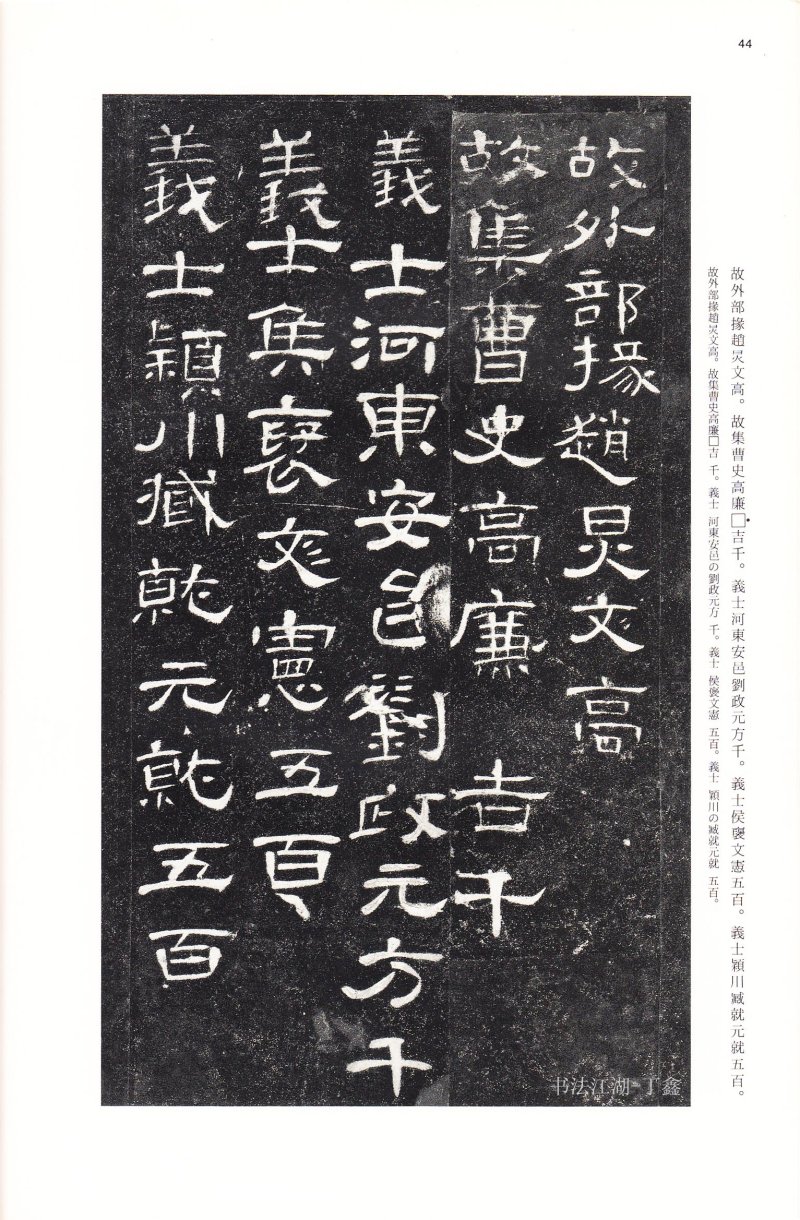 44
故外部掾趙炅文高。故集曹史高廉□吉千。義士河東安邑劉政元方千。義士侯襃文憲五百。義士穎川臧就元就五百。
故外部掾趙炅文高。故集曹史高廉□吉 千。義士 河東安邑の劉政元方 千。義士 侯褒文憲 五百。義士 穎川の臧就元就 五百。
故外部掾趙炅文高
故集曹史高廉 吉千
義士河東安邑劉政元方千
義士侯襃文憲五百
義士穎川臧就元就五百
书法江湖-丁鑫